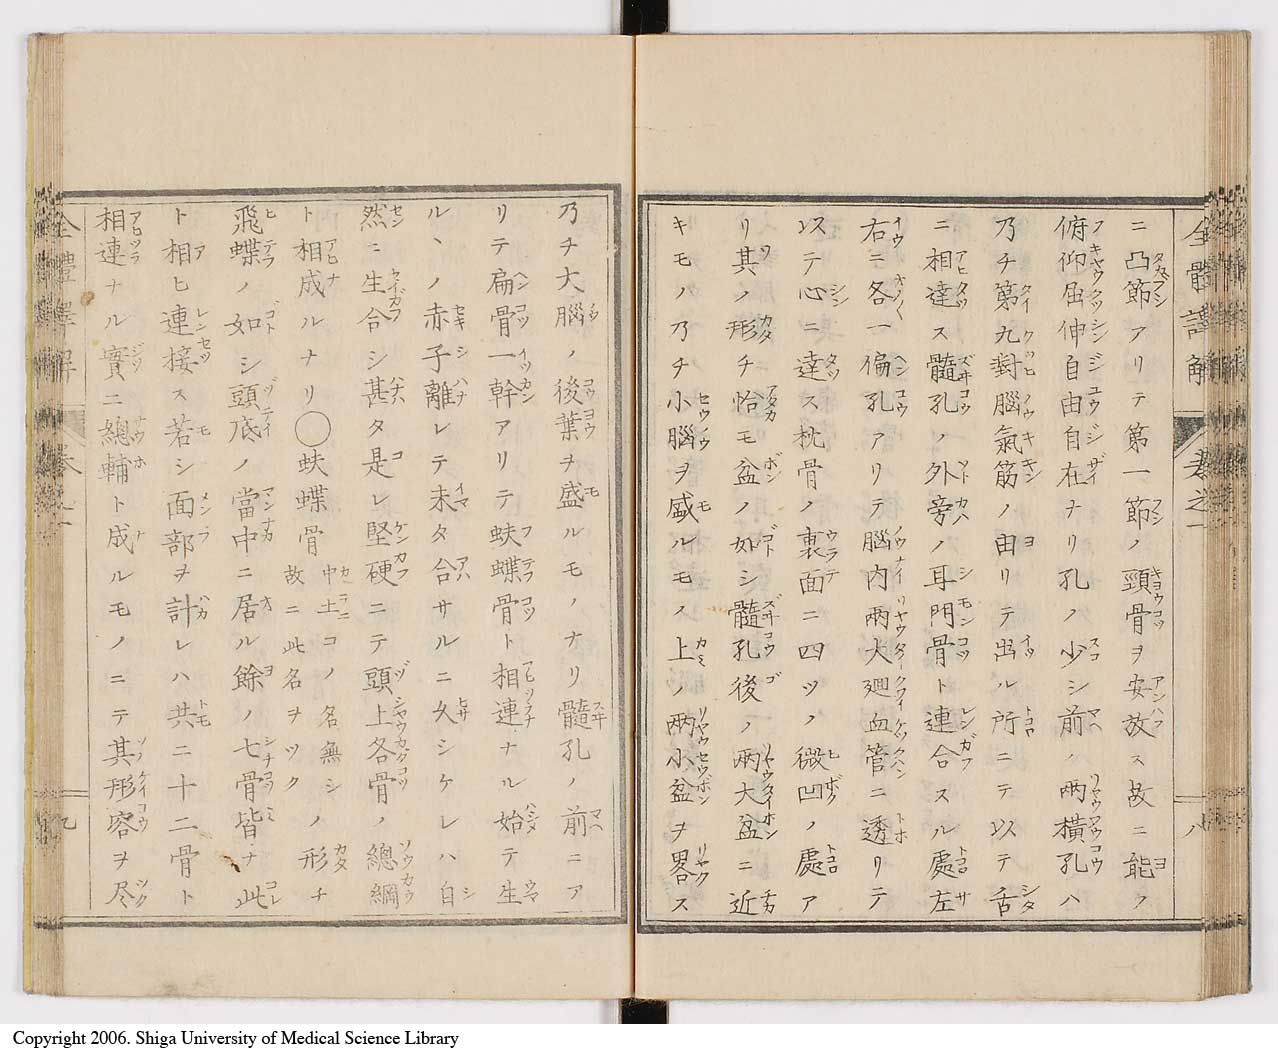 全體譯解 卷之一 八
ニ凸節アリテ第一節ノ頸骨ヲ安放ス故ニ能ク
俯仰屈伸自由自在ナリ孔ノ少シ前ノ両横孔ハ
乃チ第九對腦氣筋ノ由リテ出ル所ニテ以テ舌
ニ相達ス髓孔ノ外旁ノ耳門骨ト連合スル處左
右ニ各一偏孔アリテ腦内両大廻血管ニ透リテ
以テ心ニ達ス枕骨ノ裏面ニ四ツノ微凹ノ處ア
リ其ノ形チ恰モ盆ノ如シ髓孔後ノ両大盆ニ近
キモノ乃チ小腦ヲ盛ルモノ上ノ両小盆ヲ畧ス
乃チ大腦ノ後葉ヲ盛ルモノナリ髓孔ノ前ニア
リテ扁骨一幹アリテ蚨蝶骨ト相連ナル始テ生
ルヽノ赤子離レテ未タ合サルニ久シケレハ自
然ニ生合シ甚タ是レ堅硬ニテ頭上各骨ノ總綱
ト相成ルナリ○蚨蝶骨 中土コノ名無シ故ニ此名ヲツク ノ形チ
飛蝶ノ如シ頭底ノ當中ニ居ル餘ノ七骨皆ナ此
ト相ヒ連接ス若シ面部ヲ計レハ共ニ十二骨ト
相連ナル實ニ總輔ト成ルモノニテ其形容ヲ尽
全體譯解 卷之一 九
Copyright 2006. Shiga University of Medical Science Library